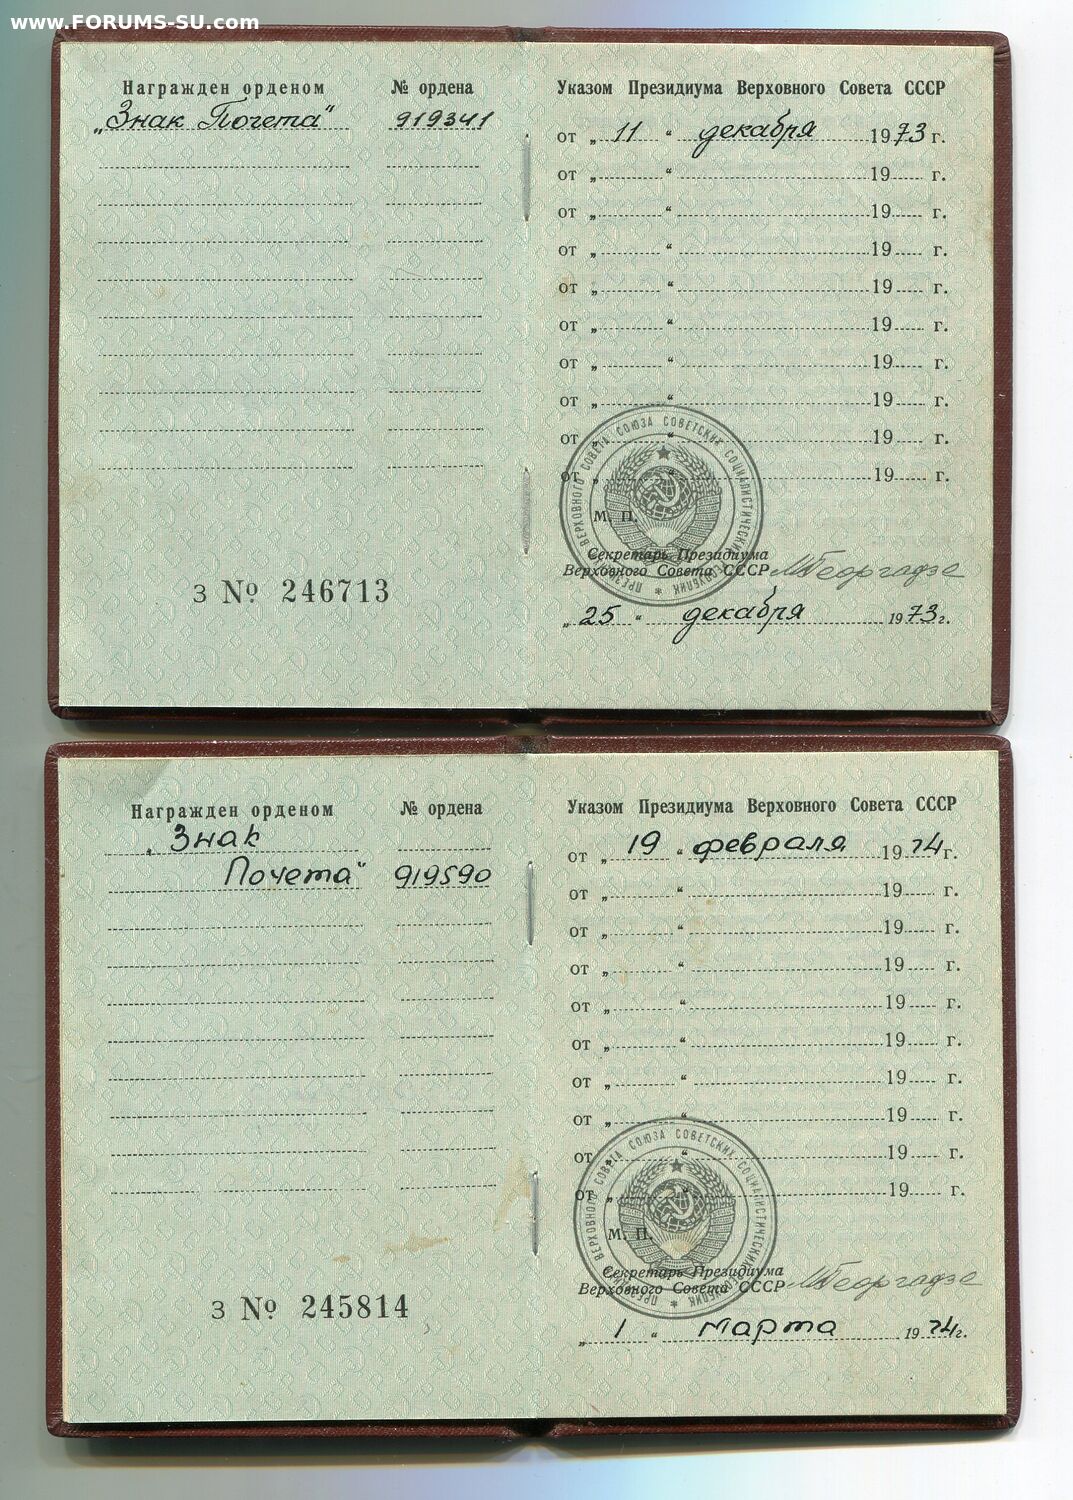 www.FORUMS-SU.com
Награжден орденом № ордена
„Знак Почета“ 919341
З № 246713
Указом Президиума Верховного Совета СССР
от „ 11 “ декабря 1973 г.
от „ “ 19 г.
от „ “ 19 г.
от „ “ 19 г.
от „ “ 19 г.
от „ “ 19 г.
от „ “ 19 г.
от „ “ 19 г.
от „ “ 19 г.
от „ “ 19 г.
ПРЕЗИДИУМ ВЕРХОВНОГО СОВЕТА СОЮЗА СОВЕТСКИХ СОЦИАЛИСТИЧЕСКИХ РЕСПУБЛИК *
М. П.
Секретарь Президиума
Верховного Совета СССР МГеоргадзе
„ 25 “ декабря 1973 г.
Награжден орденом № ордена
„Знак
Почета“ 919590
З № 245814
Указом Президиума Верховного Совета СССР
от „ 19 “ февраля 1974 г.
от „ “ 19 г.
от „ “ 19 г.
от „ “ 19 г.
от „ “ 19 г.
от „ “ 19 г.
от „ “ 19 г.
от „ “ 19 г.
от „ “ 19 г.
от „ “ 19 г.
ПРЕЗИДИУМ ВЕРХОВНОГО СОВЕТА СОЮЗА СОВЕТСКИХ СОЦИАЛИСТИЧЕСКИХ РЕСПУБЛИК *
М. П.
Секретарь Президиума
Верховного Совета СССР МГеоргадзе
„ 1 “ марта 1974 г.